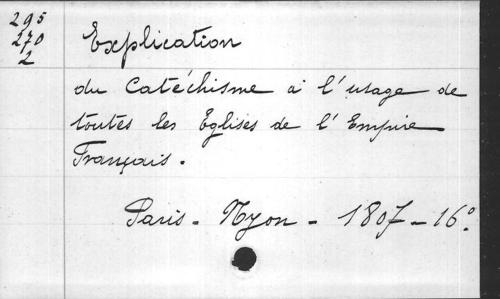 295
270
2
Explication
du Catéchisme à l'usage de
toutes les Eglises de l'Empire
Français.
Paris - Nyon - 1807 - 16°.